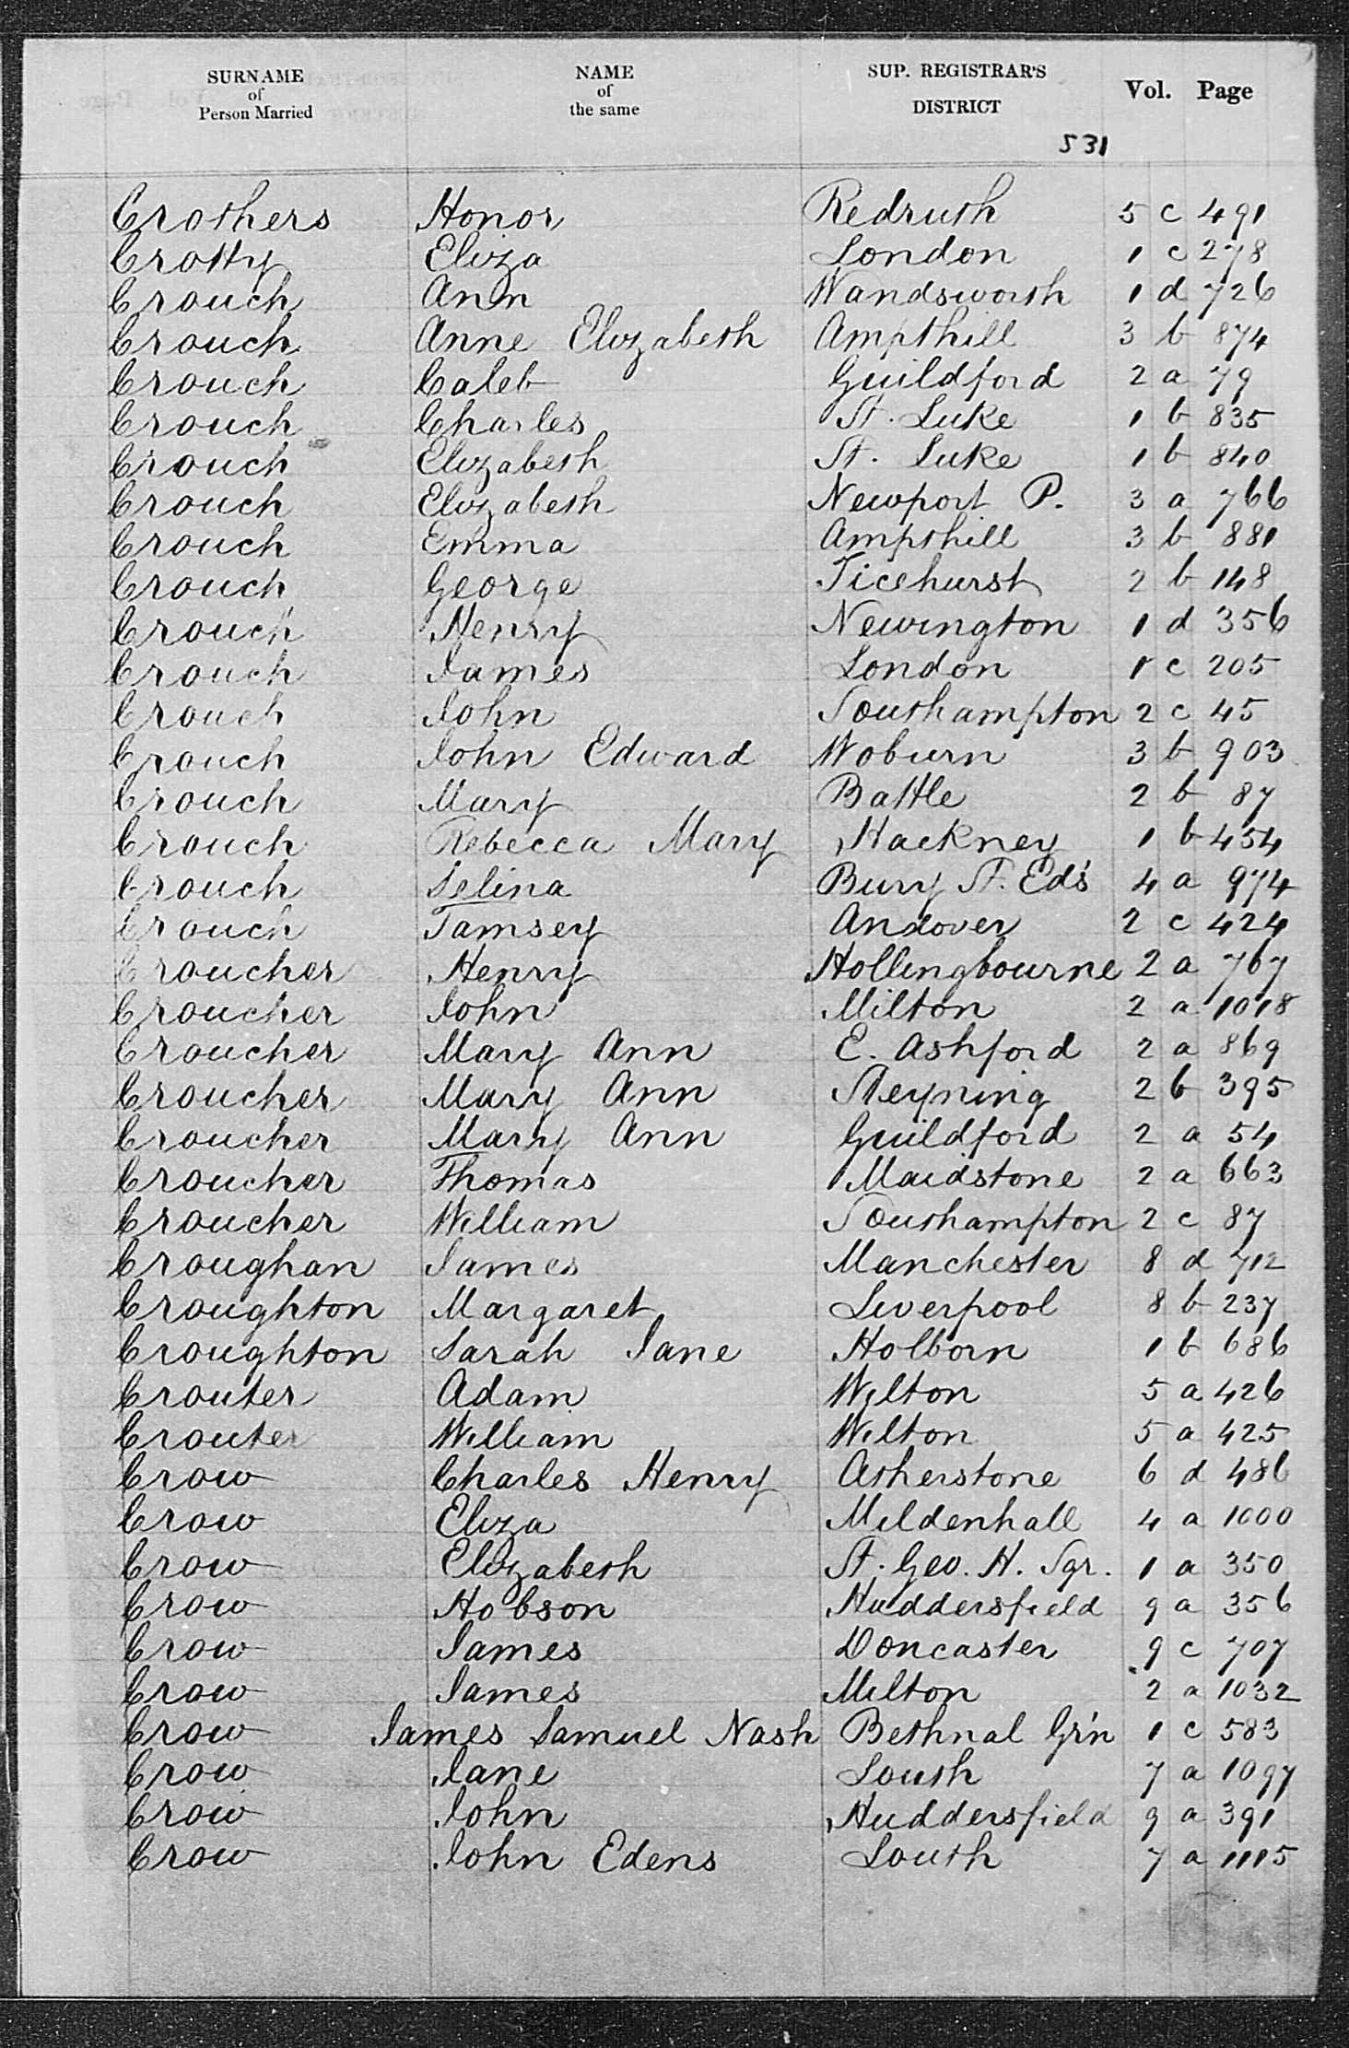 SURNAME of Person Married NAME of the same SUP. REGISTRAR'S DISTRICT Vol. Page
231
Crothers Honor Redruth 5 c 491
Crotty Eliza London 1 c 278
Crouch Ann Wandsworth 1 d 726
Crouch Anne Elizabeth Ampthill 3 b 874
Crouch Caleb Guildford 2 a 79
Crouch Charles St. Luke 1 b 835
Crouch Elizabeth St. Luke 1 b 840
Crouch Elizabeth Newport P. 3 a 766
Crouch Emma Ampthill 3 b 881
Crouch George Ticehurst 2 b 148
Crouch Henry Newington 1 d 356
Crouch James London 1 c 205
Crouch John Southampton 2 c 45
Crouch John Edward Woburn 3 b 903
Crouch Mary Battle 2 b 87
Crouch Rebecca Mary Hackney 1 b 454
Crouch Selina Bury St. Eds 4 a 974
Crouch Tamsey Andover 2 c 424
Croucher Henry Hollingbourne 2 a 767
Croucher John Milton 2 a 1018
Croucher Mary Ann E. Ashford 2 a 869
Croucher Mary Ann Steyning 2 b 395
Croucher Mary Ann Guildford 2 a 54
Croucher Thomas Maidstone 2 a 663
Croucher William Southampton 2 c 87
Croughan James Manchester 8 d 712
Croughton Margaret Liverpool 8 b 237
Croughton Sarah Jane Holborn 1 b 686
Crouter Adam Wilton 5 a 426
Crouter William Wilton 5 a 425
Crow Charles Henry Atherstone 6 d 486
Crow Eliza Mildenhall 4 a 1000
Crow Elizabeth St. Geo. H. Sqr. 1 a 350
Crow Hobson Huddersfield 9 a 356
Crow James Doncaster 9 c 707
Crow James Milton 2 a 1032
Crow James Samuel Nash Bethnal Gr'n 1 c 583
Crow Jane Louth 7 a 1097
Crow John Huddersfield 9 a 391
Crow John Edens Louth 7 a 1115